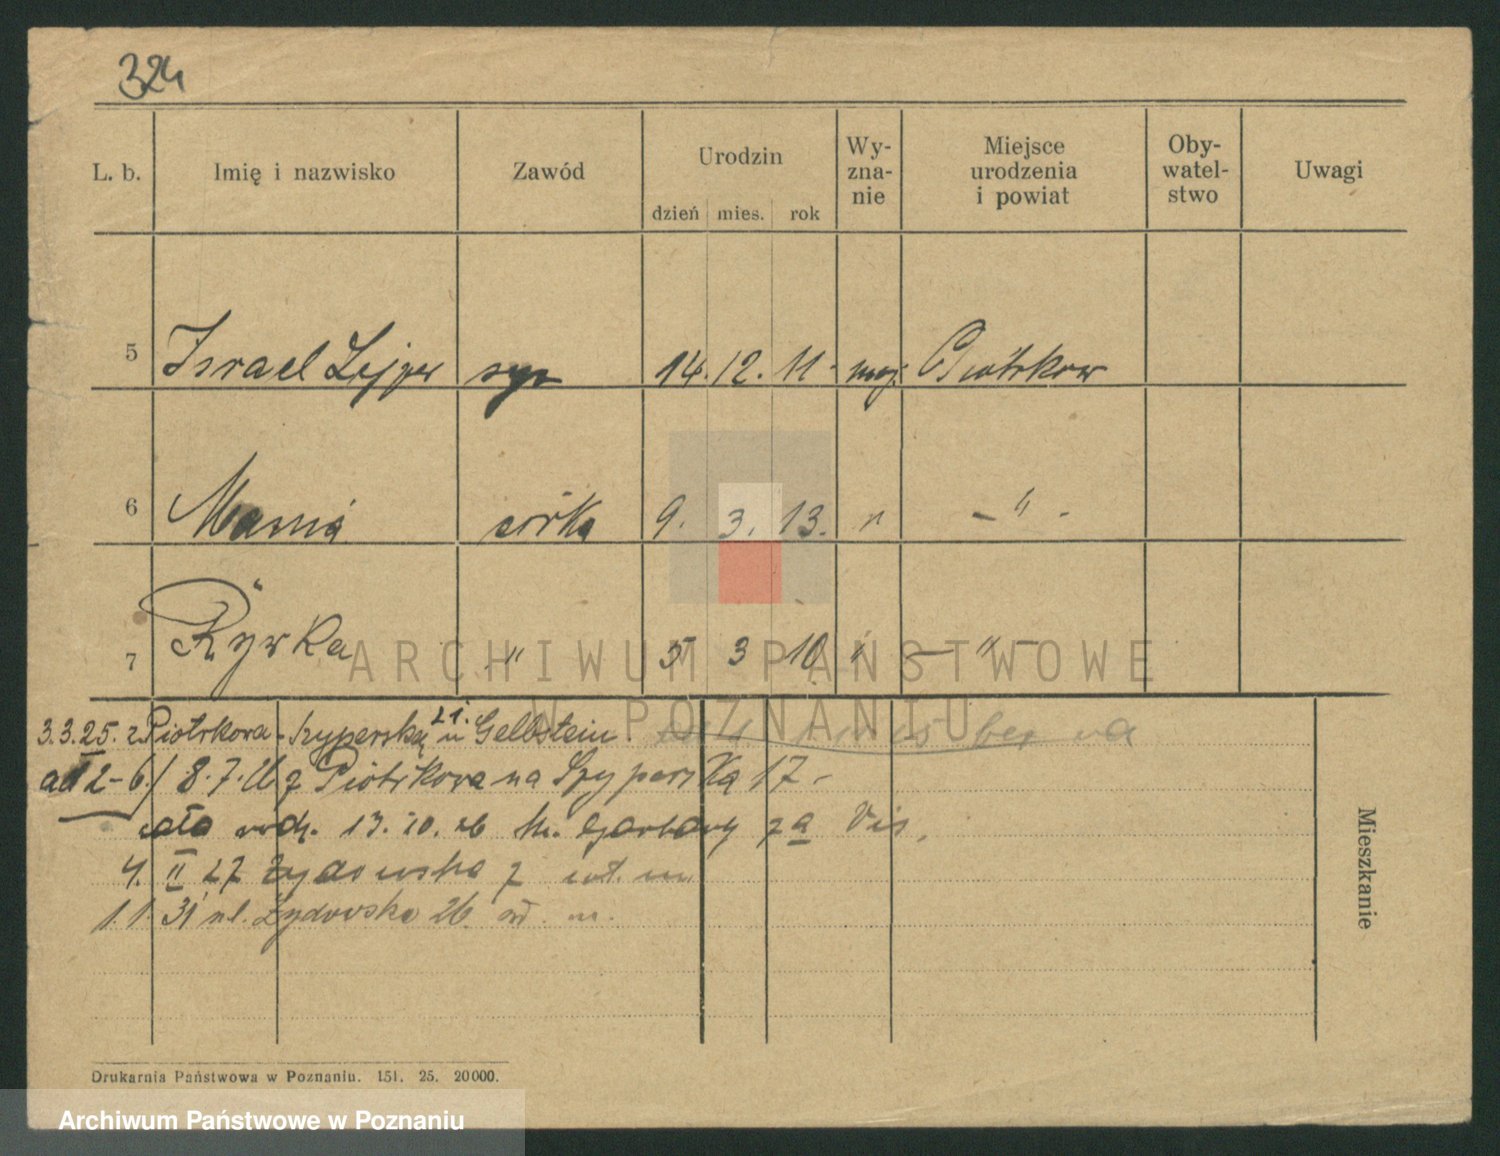 324
L. b. Imię i nazwisko Zawód Urodzin Wy-zna-nie Miejsce urodzenia i powiat Oby-watel-stwo Uwagi
dzień mies. rok
5 Israel Lejzer syn 14. 12. 11. moj. Piotrkow
6 Mania córka 9. 3. 13. " - " -
7 Rywka " 5 3 10 " - " -
ARCHIWUM PAŃSTWOWE
W POZNANIU
3.3.25. z Piotrkowa - Szyperska 21. u Gelbstein.
ad 2-6/ 8.7.26 z Piotrkowa na Szyperską 17 -
cała rodz. 13.10.26 Garbary
4. II 27 Żydowska 7
1.1.31 ul. Żydowska 26.
Mieszkanie
Drukarnia Państwowa w Poznaniu. 151. 25. 20000.
Archiwum Państwowe w Poznaniu